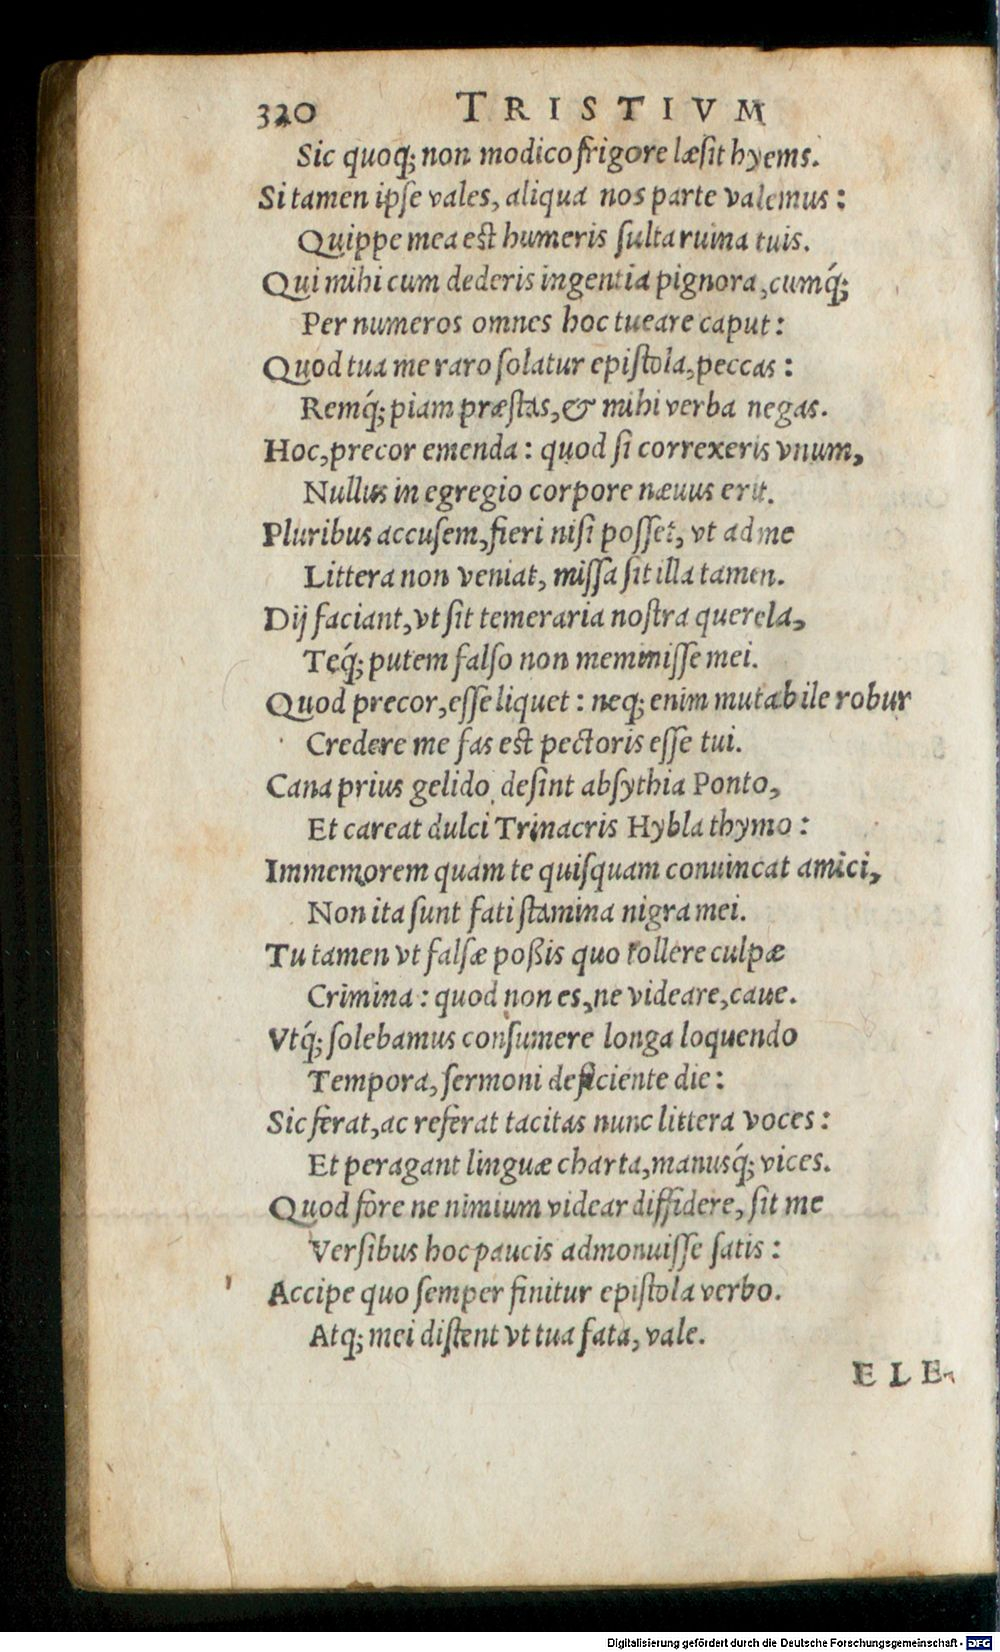 320 TRISTIVM
Sic quoq; non modico frigore læsit hyems.
Si tamen ipſe vales, aliqua nos parte valemus:
Quippe mea est humeris ſulta ruina tuis.
Qui mihi cum dederis ingentia pignora, cumq́;
Per numeros omnes hoc tueare caput:
Quod tua me raro ſolatur epiſtola, peccas:
Remq́; piam præſtas, & mihi verba negas.
Hoc, precor emenda: quod ſi correxeris vnum,
Nullus in egregio corpore næuus erit.
Pluribus accuſem, fieri niſi poſſet, vt ad me
Littera non veniat, miſſa ſit illa tamen.
Dij faciant, vt ſit temeraria noſtra querela,
Teq́; putem falſo non meminiſſe mei.
Quod precor, eſſe liquet: neq; enim mutabile robur
Credere me fas est pectoris eſſe tui.
Cana prius gelido deſint abſythia Ponto,
Et careat dulci Trinacris Hybla thymo:
Immemorem quam te quiſquam conuincat amici,
Non ita ſunt fati ſtamina nigra mei.
Tu tamen vt falſæ poßis quo tollere culpæ
Crimina: quod non es, ne videare, caue.
Vtq́; ſolebamus conſumere longa loquendo
Tempora, ſermoni deficiente die:
Sic ferat, ac referat tacitas nunc littera voces:
Et peragant linguæ charta, manusq́; vices.
Quod fore ne nimium videar diffidere, ſit me
Verſibus hoc paucis admonuiſſe ſatis:
Accipe quo ſemper finitur epiſtola verbo.
Atq; mei diſtent vt tua fata, vale.
ELE-
Digitalisierung gefördert durch die Deutsche Forschungsgemeinschaft - DFG